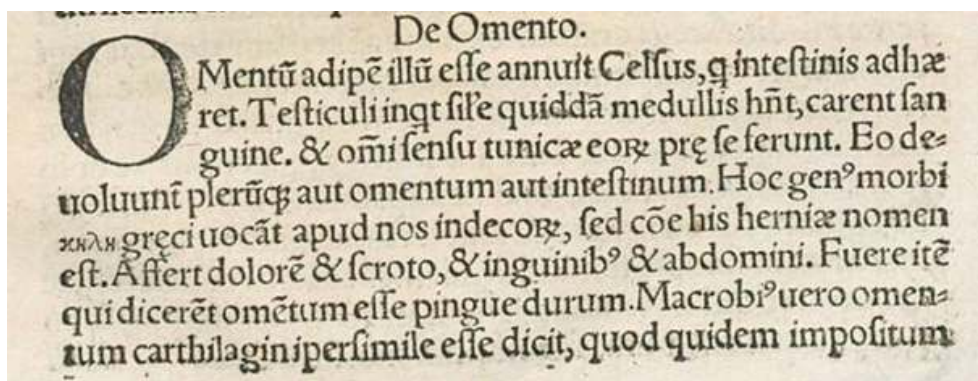 De Omento.
OMentū adipē illū eſſe annuit Celſus, q inteſtinis adhæ
ret. Teſticuli inqt ſiłe quiddā medullis hn̄t, carent ſan
guine. & om̄i ſenſu tunicæ eoꝝ prę ſe ferunt. Eo de⸗
uoluunt̄ plerūqꝫ aut omentum aut inteſtinum. Hoc genꝰ morbi
ϰηλη gręci uocāt apud nos indecoꝝ, ſed cōe his herniæ nomen
eſt. Affert dolorē & ſcroto, & inguinibꝰ & abdomini. Fuere itē
qui dicerēt omētum eſſe pingue durum. Macrobiꝰ uero omen⸗
tum carthilagini perſimile eſſe dicit, quod quidem impoſitum